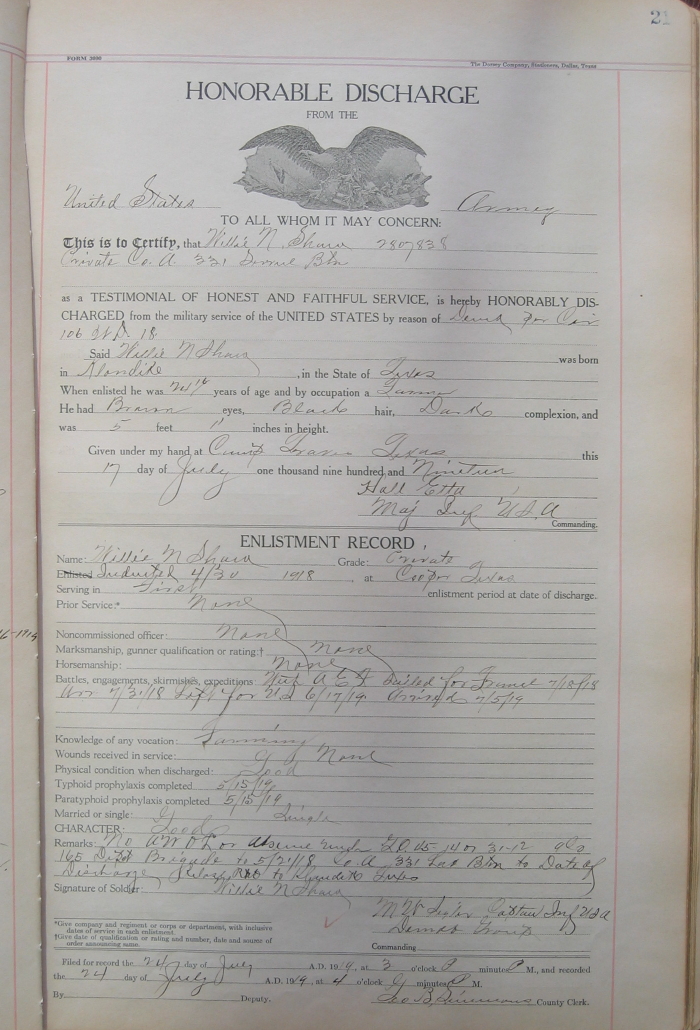 21
FORM 3090
The Dorsey Company, Stationers, Dallas, Texas
HONORABLE DISCHARGE
FROM THE
United States Army
TO ALL WHOM IT MAY CONCERN:
This is to Certify, that Willie N. Shaw 2807838
Private Co. A. 331 Btn
as a TESTIMONIAL OF HONEST AND FAITHFUL SERVICE, is hereby HONORABLY DIS-
CHARGED from the military service of the UNITED STATES by reason of Demob per Cir
106 W.D. 18.
Said Willie N Shaw was born
in Klondike, in the State of Texas
When enlisted he was years of age and by occupation a Farmer
He had Brown eyes, Black hair, Dark complexion, and
was 5 feet 11 inches in height.
Given under my hand at Camp Travis Texas this
17 day of July one thousand nine hundred and Nineteen
Hall Etta
Maj Inf U.S.A
Commanding.
ENLISTMENT RECORD
Name: Willie N Shaw Grade: Private
Enlisted Inducted 4/30 1918, at Cooper Texas
Serving in First enlistment period at date of discharge.
Prior Service:* None
Noncommissioned officer: None
Marksmanship, gunner qualification or rating:† None
Horsemanship: None
Battles, engagements, skirmishes, expeditions: With A E F Sailed for France 7/10/18
Arr 7/31/18 Left for US 6/17/19. Arrived 7/5/19
Knowledge of any vocation: Farming
Wounds received in service: None
Physical condition when discharged: Good
Typhoid prophylaxis completed 5/15/19
Paratyphoid prophylaxis completed 5/15/19
Married or single: Single
CHARACTER: Good
Remarks: No A W O L or Absence under G.O. 45-14 or 31-12
165 Depot Brigade to 5/21/18 Co. A. 331 Btn to Date of
Discharge to Klondike Texas
Signature of Soldier: Willie N Shaw
Captain Inf U S A
Commanding
*Give company and regiment or corps or department, with inclusive
dates of service in each enlistment.
†Give date of qualification or rating and number, date and source of
order announcing same.
Filed for record the 24 day of July A.D. 1919, at 3 o'clock minutes P M., and recorded
the 24 day of July A.D. 1919, at 4 o'clock minutes P M.
By Deputy. Geo B. Simmons County Clerk.